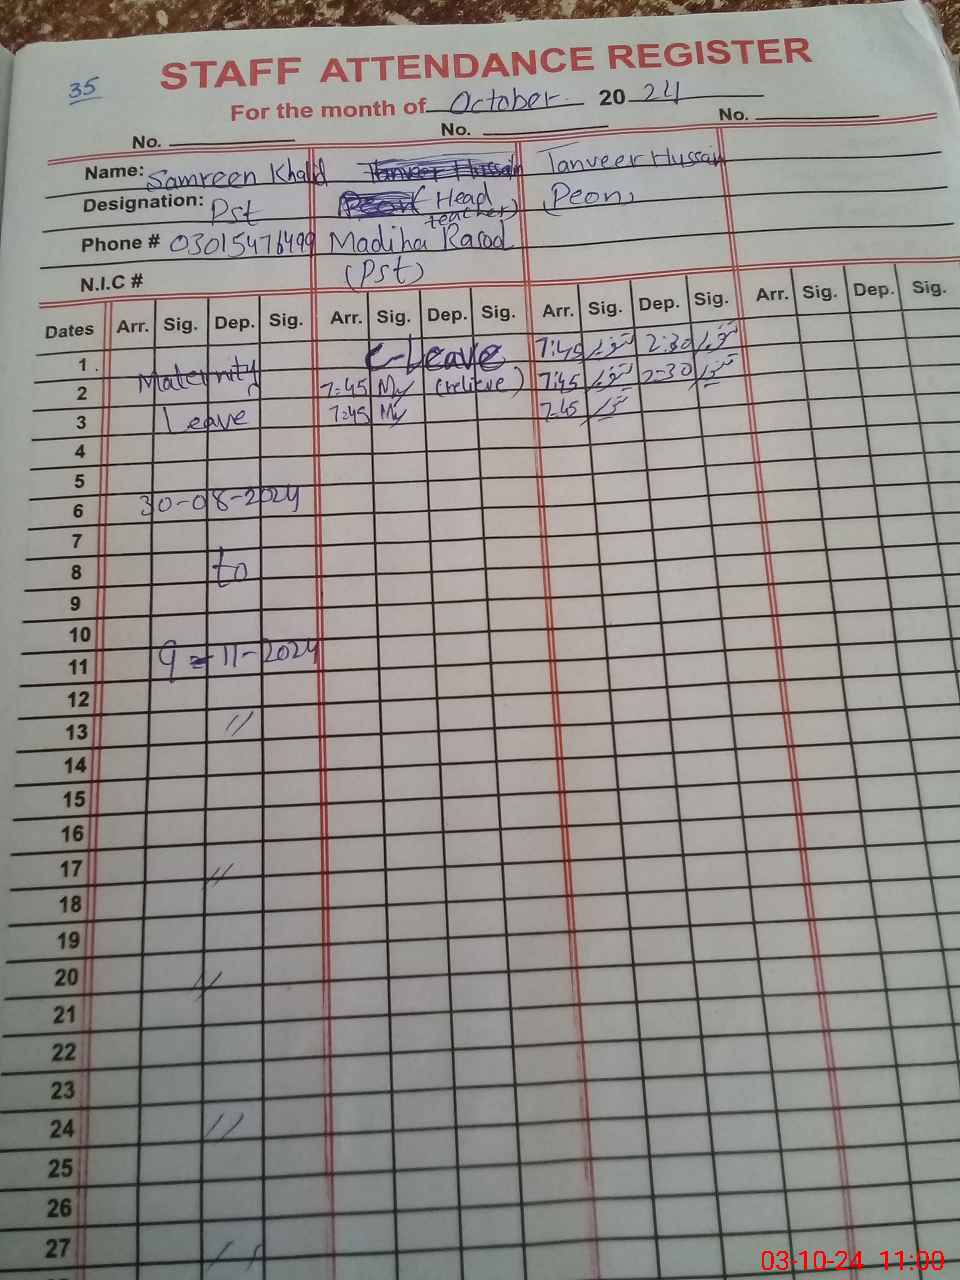 35
STAFF ATTENDANCE REGISTER
For the month of October 2024
No. No. No.
Name: Samreen Khalid Tanveer Hussain Tanveer Hussain
Designation: Pst Peon (Head teacher) (Peon)
Phone # 03015476499 Madiha Rasool
N.I.C # (Pst)
Dates Arr. Sig. Dep. Sig. Arr. Sig. Dep. Sig. Arr. Sig. Dep. Sig. Arr. Sig. Dep. Sig.
1 C-Leave 7:45 تنویر 2:30 تنویر
2 Maternity 7:45 (relieve) 7:45 تنویر 2:30 تنویر
3 Leave 7:45 7:45 تنویر
4
5
6 30-08-2024
7
8 to
9
10
11 9-11-2024
12
13 //
14
15
16
17 //
18
19
20 //
21
22
23
24 //
25
26
27 //
03-10-24 11:00